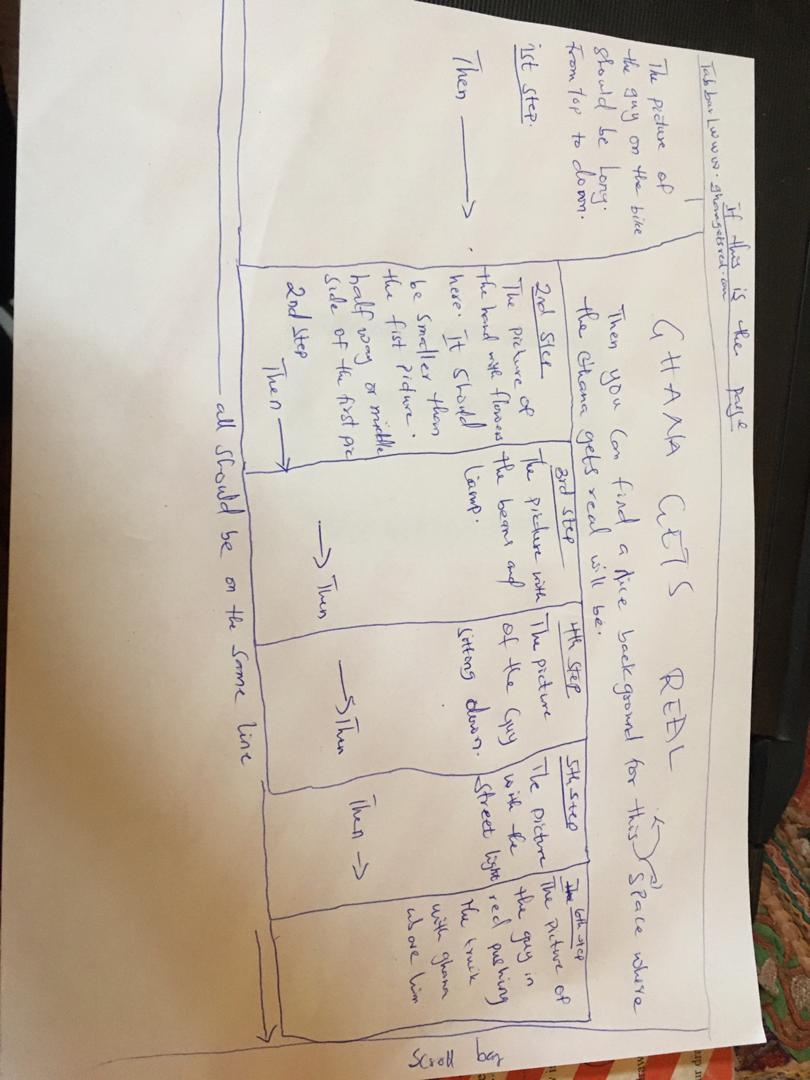 If this is the page
Tab bar www.ghanagetsred.com
The picture of
the guy on the bike
should be Long.
From Top to down.
1st step.
Then
GHANA GETS REAL
Then you Can find a nice background for this space where
the Ghana gets real will be.
2nd Step
The picture of
the hand with flowers
here. It should
be smaller than
the fist picture.
half way or middle
side of the first pic
2nd step
Then
3rd step
The picture with
the beans and
Lamp.
Then
4th step
The picture
of the Guy
sitting down.
Then
5th step
The picture
with the
street light
Then
The 6th step
The picture of
the guy in
red pushing
the truck
with ghana
above him
Scroll bar
all should be on the same line